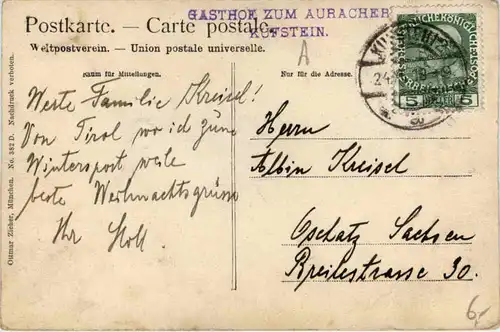 GASTHOF ZUM AURACHER
KUFSTEIN.
Postkarte. — Carte postale.
Weltpostverein. — Union postale universelle.
Raum für Mitteilungen.
Nur für die Adresse.
A
5 5
Werte Familie Kreisel!
Von Tirol wo ich zum
Wintersport weile
beste Weihnachtsgrüsse
Ihr Stoll.
Herrn
Albin Kreisel
Oschatz Sachsen
Breitestrasse 30.
6,-
Ottmar Zieher, München. No. 382 D. Nachdruck verboten.